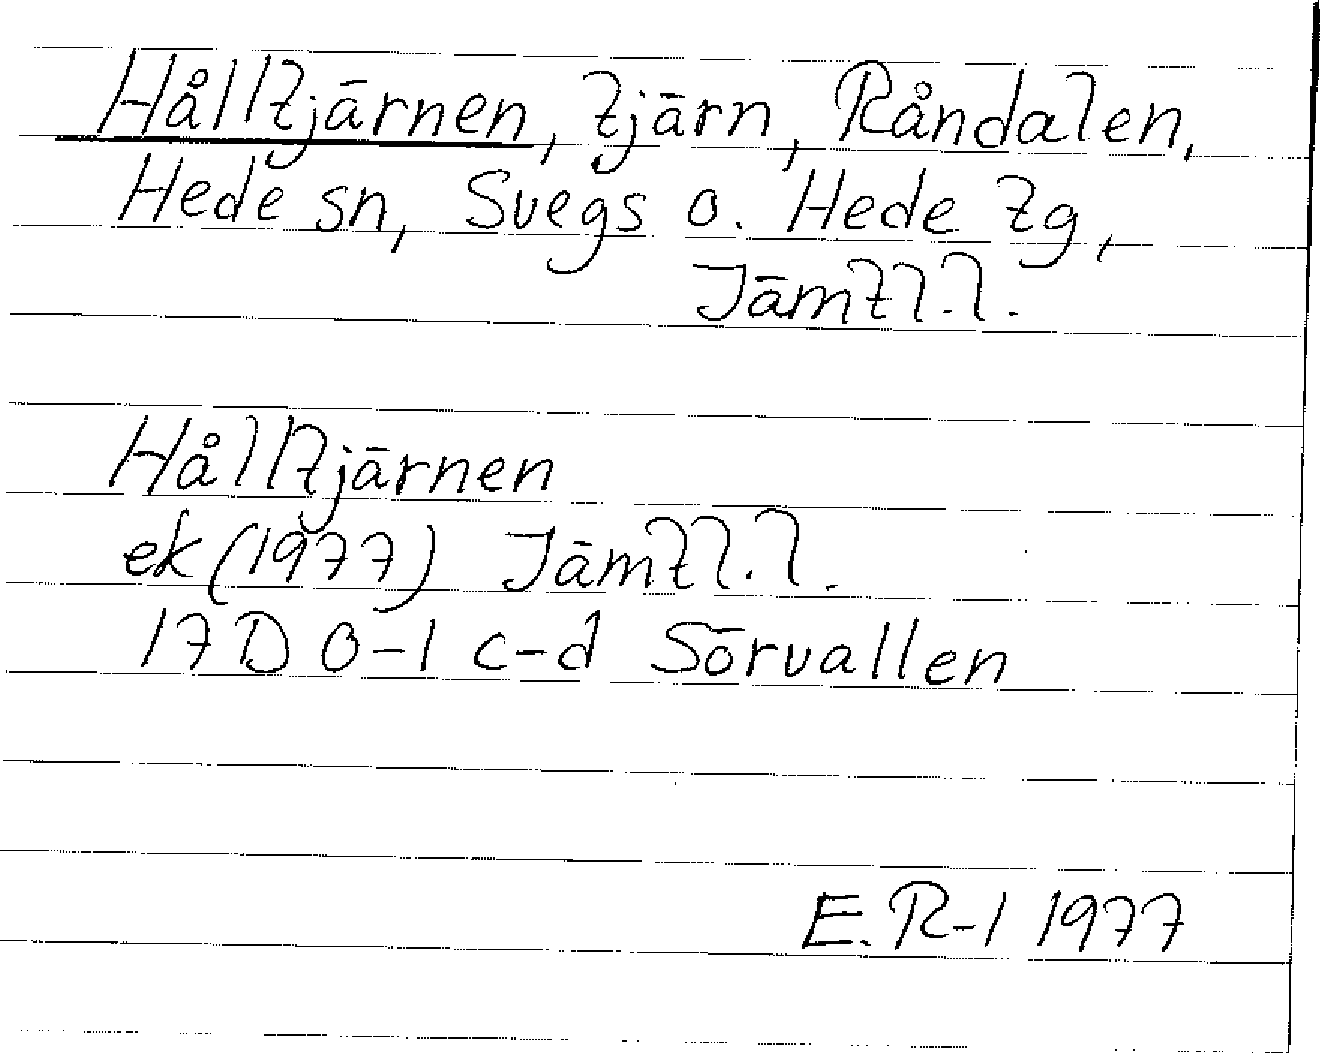 Hålltjärnen, tjärn, Råndalen,
Hede sn, Svegs o. Hede tg,
Jämtl.l.
Hålltjärnen
ek (1977) Jämtl.l.
17D 0-1 c-d Sörvallen
E.R-l 1977